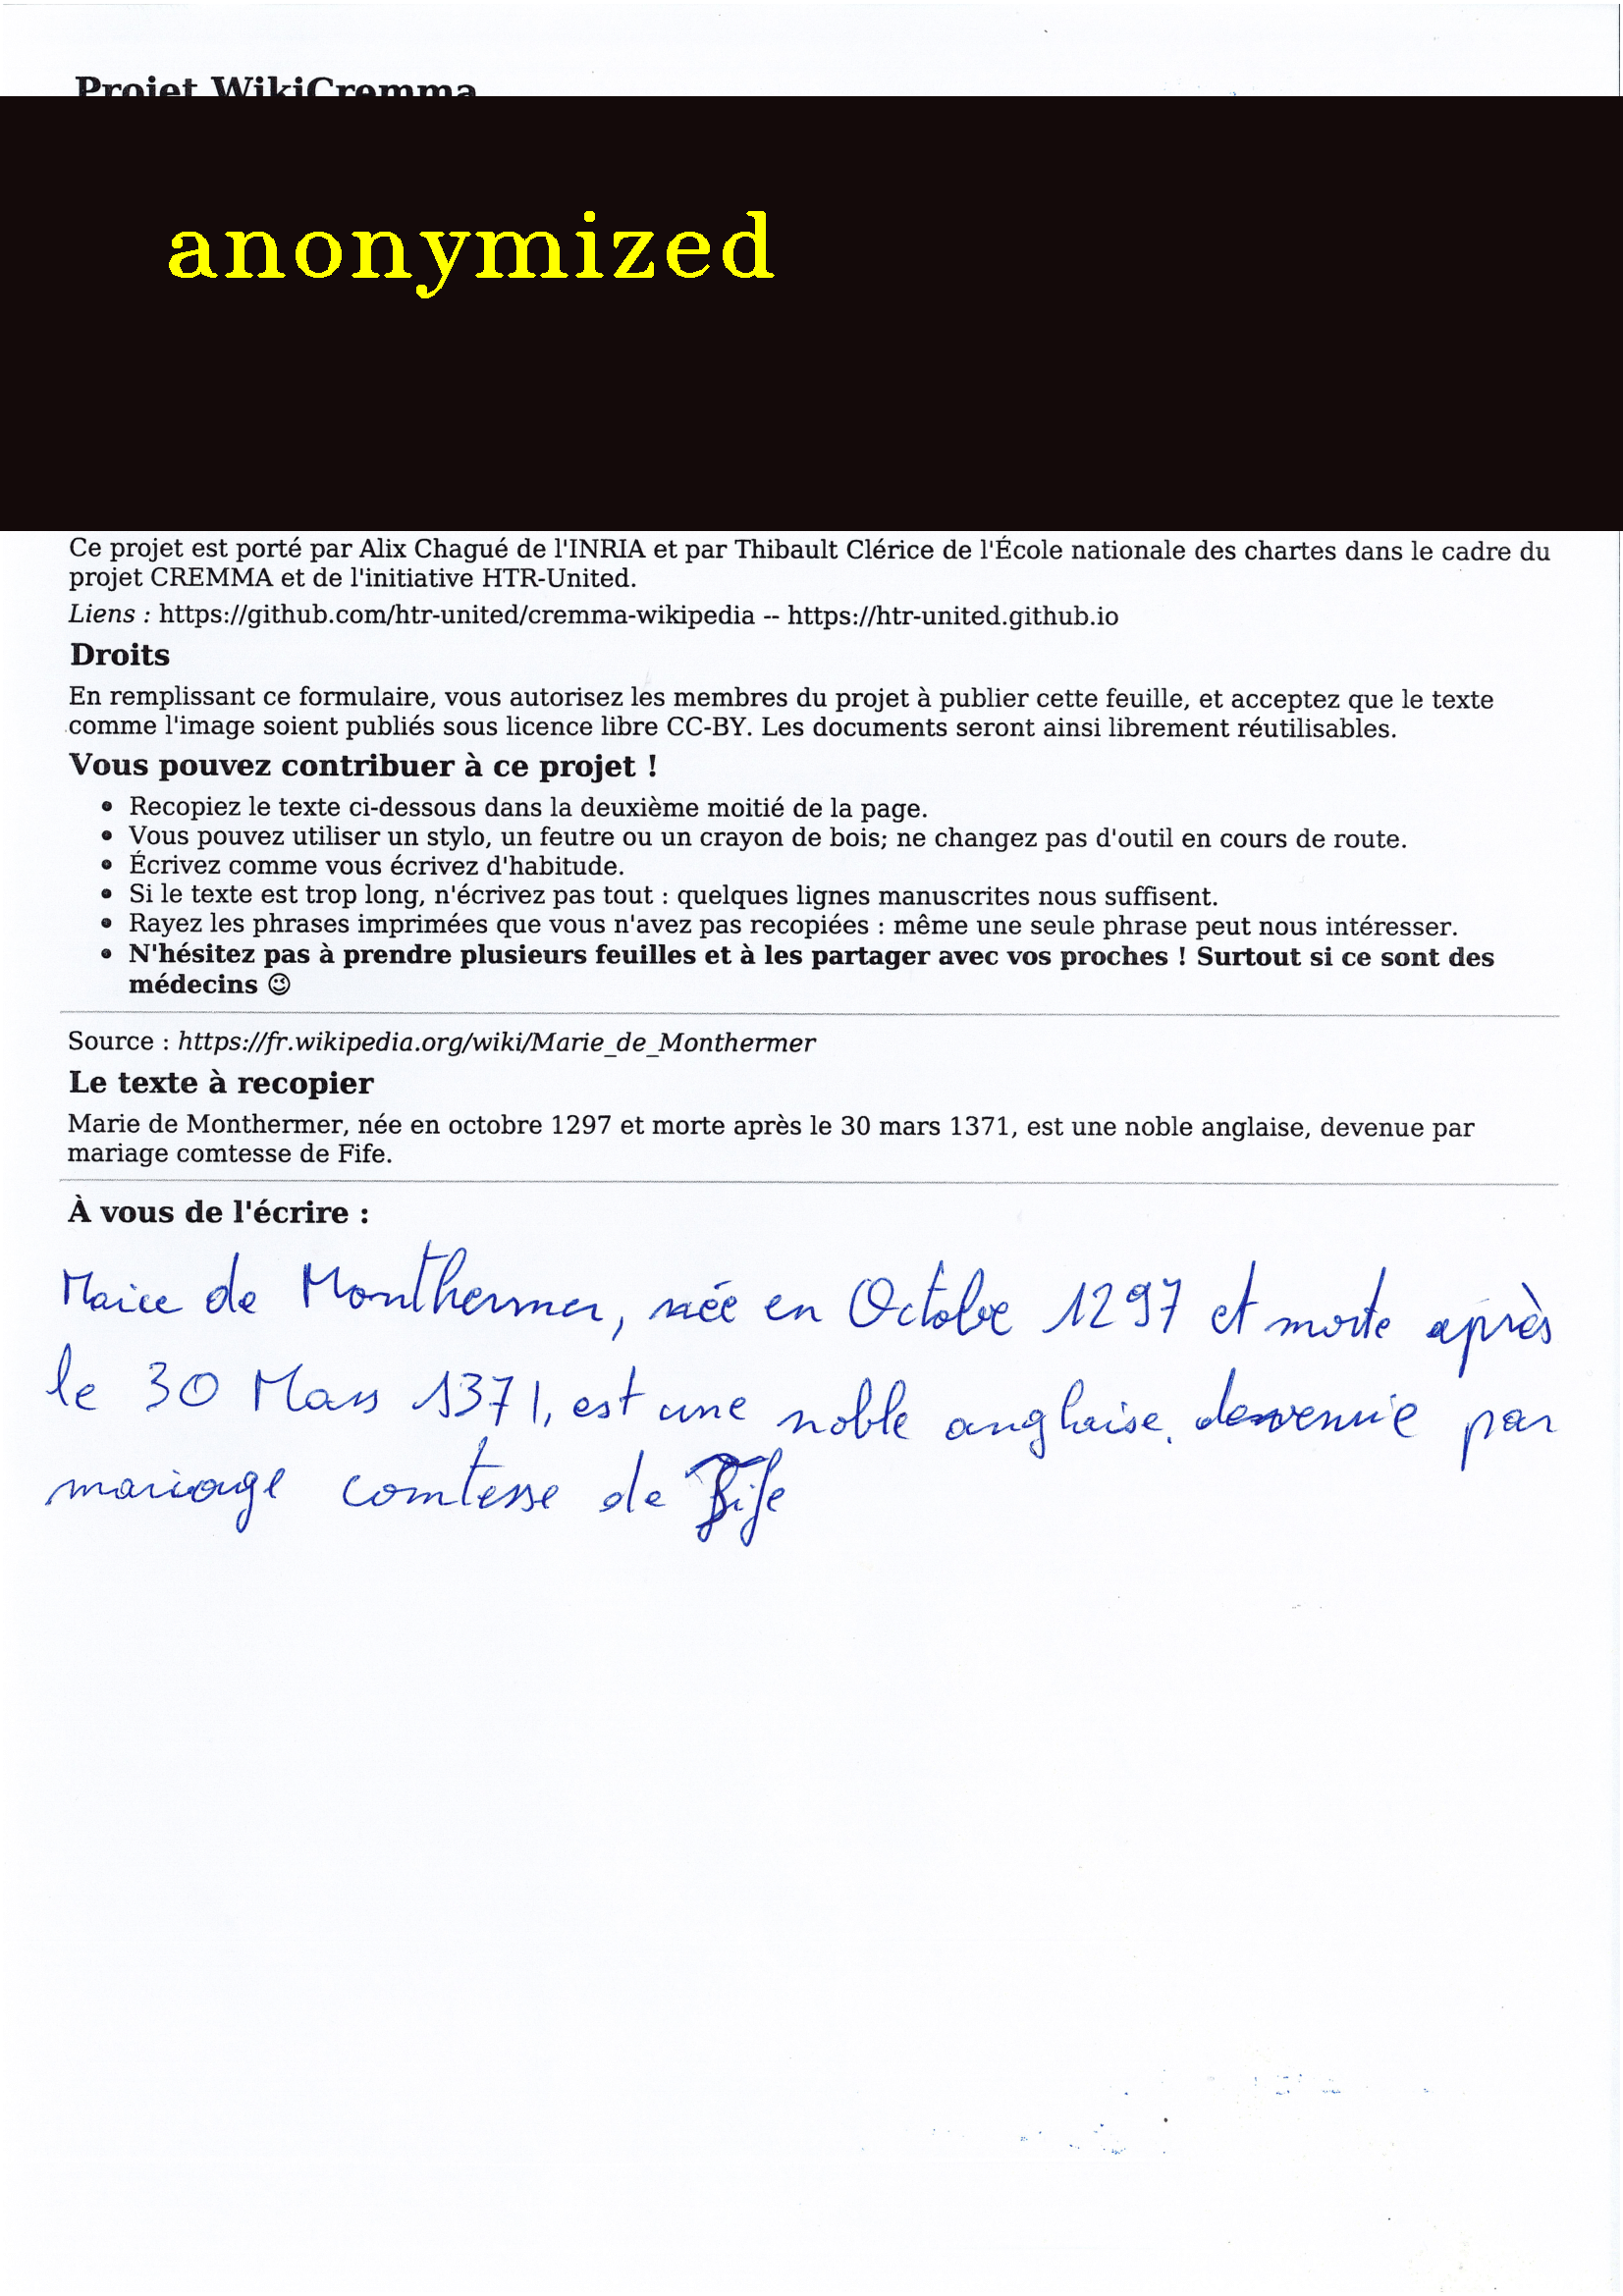 Projet WikiCremma
anonymized
Ce projet est porté par Alix Chagué de l'INRIA et par Thibault Clérice de l'École nationale des chartes dans le cadre du
projet CREMMA et de l'initiative HTR-United.
Liens : https://github.com/htr-united/cremma-wikipedia -- https://htr-united.github.io
Droits
En remplissant ce formulaire, vous autorisez les membres du projet à publier cette feuille, et acceptez que le texte
comme l'image soient publiés sous licence libre CC-BY. Les documents seront ainsi librement réutilisables.
Vous pouvez contribuer à ce projet !
• Recopiez le texte ci-dessous dans la deuxième moitié de la page.
• Vous pouvez utiliser un stylo, un feutre ou un crayon de bois; ne changez pas d'outil en cours de route.
• Écrivez comme vous écrivez d'habitude.
• Si le texte est trop long, n'écrivez pas tout : quelques lignes manuscrites nous suffisent.
• Rayez les phrases imprimées que vous n'avez pas recopiées : même une seule phrase peut nous intéresser.
• N'hésitez pas à prendre plusieurs feuilles et à les partager avec vos proches ! Surtout si ce sont des
médecins 😉
Source : https://fr.wikipedia.org/wiki/Marie_de_Monthermer
Le texte à recopier
Marie de Monthermer, née en octobre 1297 et morte après le 30 mars 1371, est une noble anglaise, devenue par
mariage comtesse de Fife.
À vous de l'écrire :
Marie de Monthermer, née en Octobre 1297 et morte après
le 30 Mars 1371, est une noble anglaise, devenue par
mariage comtesse de Fife